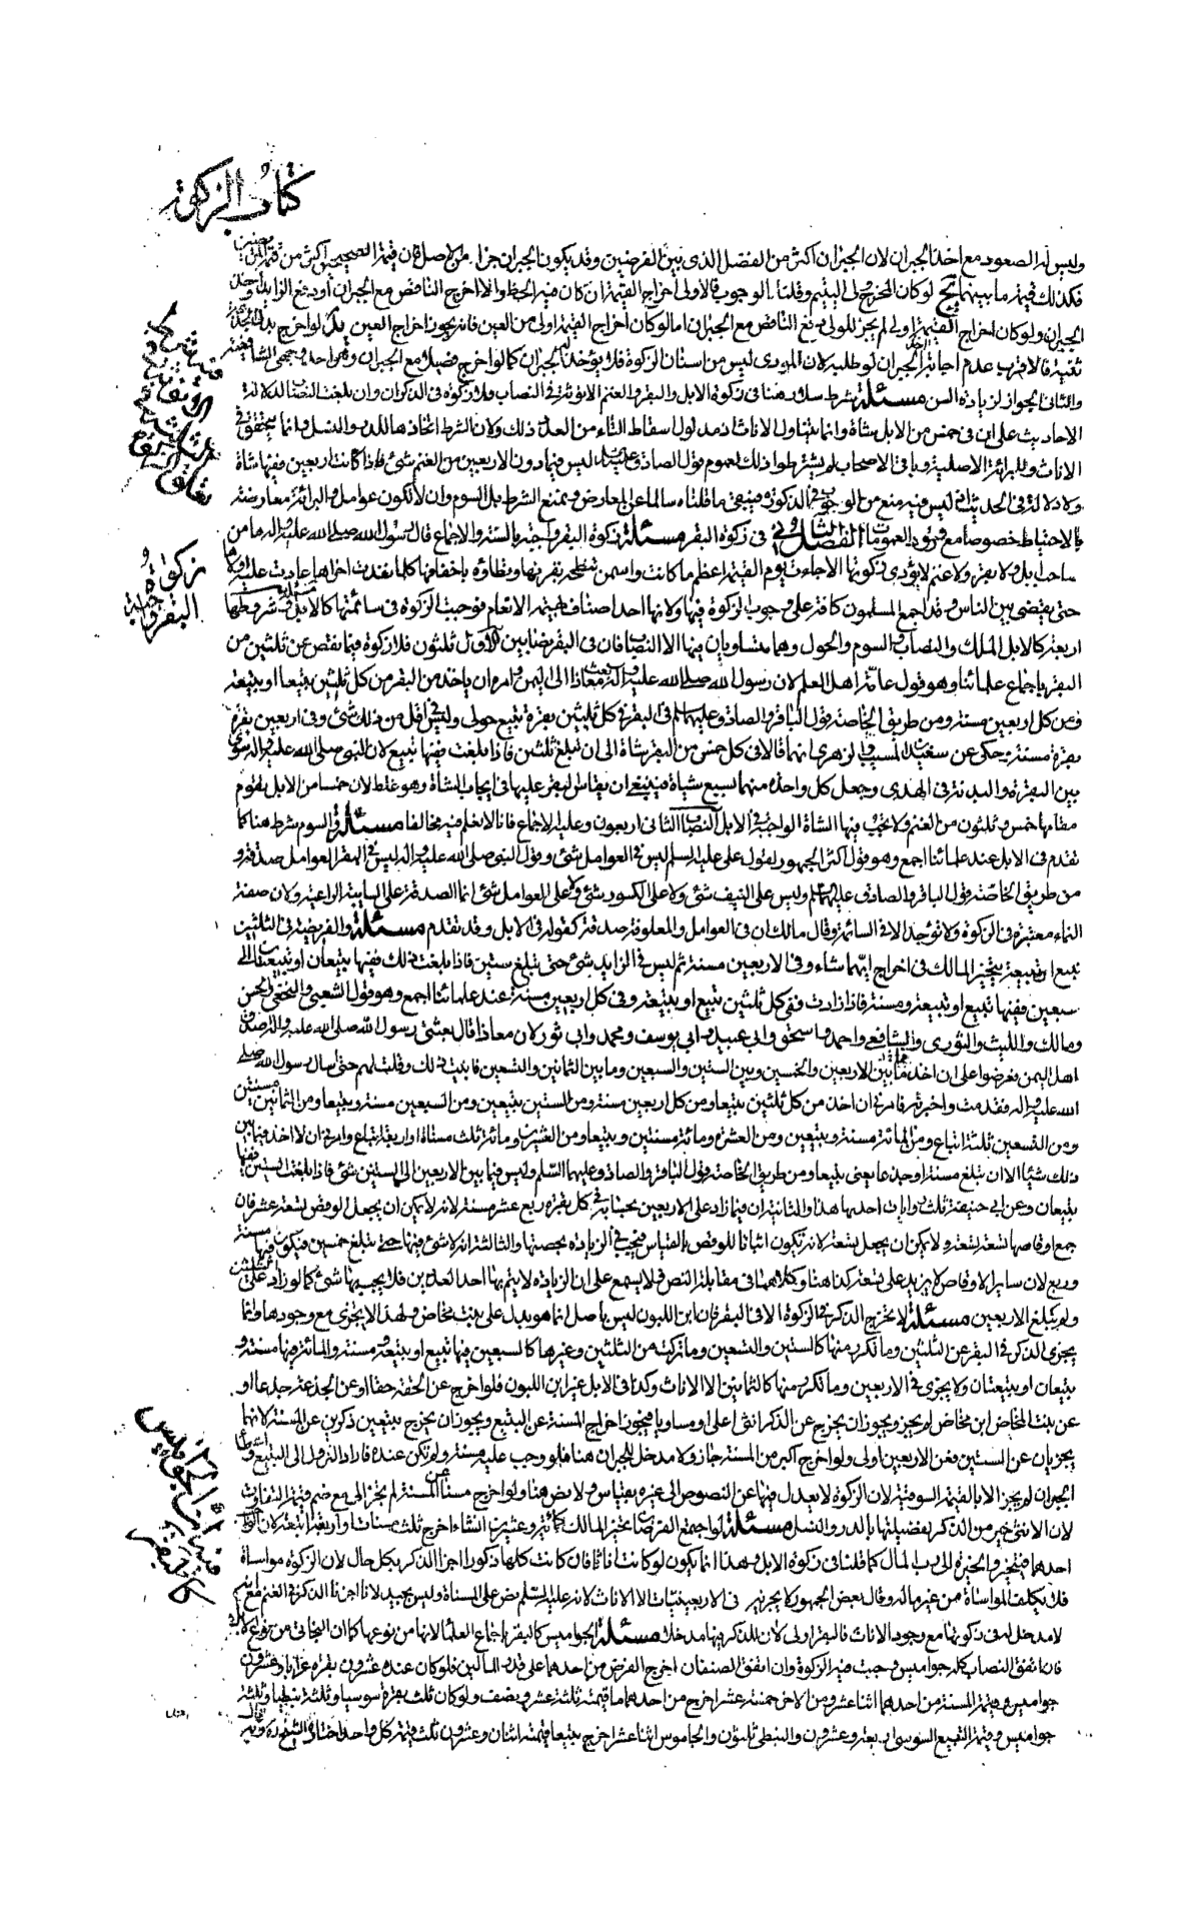 كتاب الزكوة
وليس له الصعود مع اخذ الجبران لان الجبران اكثر من الفضل الذى بين الفرضين وقد يكون الجبران جزا من الاصل فان قيمة الصحيحين اكثر من قيمة المريضين
فكذلك قيمة ما بينهما لو كان المخرج ولى اليتيم وقلنا بالوجوب فالاولى اخراج القيمة ان كان فيه الحظ والا اخرج الناقص مع الجبران او دفع الزايد واخذ
الجبران ولو كان اخراج القيمة اولى لم يجز للولى دفع الناقص مع الجبران اما لو كان اخراج القيمة اولى من العين فانه يجوز اخراج العين ولو اخرج بدل الجذعة
ثنية فالاقرب عدم اجابة الجبران لو طلبه لان المؤدى ليس من اسنان الزكوة فلا يؤخذ الجبران كما لو اخرج فصيلا مع الجبران وهو احد وجهى الشافعية
والثانى الجواز لزيادة السن مسئلة شرط سلار هنا فى زكوة الابل والبقر والغنم الانوثة فى النصاب فلا زكوة فى الذكران وان بلغت النصاب لدلالة
الاحاديث على ان فى خمس من الابل شاة وانما يتناول الاناث لمدلول سقاط التاء من العدد ذلك ولان الشرط اتخاذها للدر والنسل وانما يتحقق فى
الاناث وللبرائة الاصلية وباقى الاصحاب لم يشترطوا ذلك لعموم قول الصادق عليه السلام ليس فيما دون الاربعين من الغنم شئ فاذا كانت اربعين ففيها شاة
ولا دلالة فى الحديث اذ ليس فيه منع من الوجوب فى الذكورة فيبقى ما قلناه سالما عن المعارض ونمنع الشرط بل السوم وان لا تكون عوامل والبرائة معارضة
بالاحتياط خصوصا مع ورود العمومات الفصل الثانى فى زكوة البقر مسئلة زكوة البقر واجبة بالسنة والاجماع قال رسول الله صلى الله عليه واله ما من
صاحب ابل ولا بقر ولا غنم لا يؤدى زكوتها الا جاءت يوم القيمة اعظم ما كانت واسمن تنطحه بقرنها وتطاؤه باخفافها كلما نفدت اخراها عادت عليه اولاها
حتى يقضى بين الناس وقد اجمع المسلمون كافة على وجوب الزكوة فيها ولانها احد اصناف بهيمة الانعام فوجبت الزكوة فى سائمتها كالابل مسئلة وشروطها
اربعة كالابل الملك والنصاب والسوم والحول وهما متساويان فيها الا النصاب فان فى البقر نصابين الاول ثلثون فلا زكوة فيما نقص عن ثلثين من
البقر باجماع علمائنا وهو قول عامة اهل العلم لان رسول الله صلى الله عليه واله بعث معاذا الى اليمن وامره ان ياخذ من البقر من كل ثلثين تبيعا او تبيعة
ومن كل اربعين مسنة ومن طريق الخاصة قول الباقر والصادق عليهما السلم فى البقر فى كل ثلثين بقرة تبيع حولى وليس فى اقل من ذلك شئ وفى اربعين بقرة
بقرة مسنة وحكى عن سعيد بن المسيب والزهرى انهما قالا فى كل خمس من البقر شاة الى ان تبلغ ثلثين فاذا بلغت ففيها تبيع لان النبى صلى الله عليه واله سوى
بين البقرة والبدنة فى الهدى وجعل كل واحدة منهما بسبع شياة فينبغى ان يقاس البقر عليها فى ايجاب الشاة وهو غلط لان خمسا من الابل يقوم
مقامها خمس وثلثون من الغنم ولا يجب فيها الشاة الواجبة فى الابل النصاب الثانى اربعون وعليه الاجماع فانا لا نعلم فيه مخالفا مسئلة والسوم شرط هنا كما
تقدم فى الابل عند علمائنا اجمع وهو قول اكثر الجمهور لقول على عليه السلم ليس فى العوامل شئ وقول النبى صلى الله عليه واله ليس فى البقر العوامل صدقة و
من طريق الخاصة قول الباقر والصادق عليهما السلم وليس على النيف شئ ولا على الكسور شئ ولا على العوامل شئ انما الصدقة على السايمة الراعية ولان صفة
النماء معتبرة فى الزكوة ولا توجد الا فى السائمة وقال مالك ان فى العوامل والمعلوفة صدقة كقوله فى الابل وقد تقدم مسئلة والفريضة فى الثلثين
تبيع او تبيعة يتخير المالك فى اخراج ايهما شاء وفى الاربعين مسنة ثم ليس فى الزايد شئ حتى تبلغ ستين فاذا بلغت ذلك ففيها تبيعان او تبيعتان الى
سبعين ففيها تبيع او تبيعة ومسنة فاذا زادت ففى كل ثلثين تبيع او تبيعة وفى كل اربعين مسنة عند علمائنا اجمع وهو قول الشعبى والنخعى والحسن
ومالك والليث والثورى والشافعى واحمد واسحق وابى عبيد وابى يوسف ومحمد وابى ثور لان معاذا قال بعثنى رسول الله صلى الله عليه واله اصدق
اهل اليمن فعرضوا على ان اخذ مما بين الاربعين والخمسين وبين الستين والسبعين وما بين الثمانين والتسعين فابيت ذلك وقلت لهم حتى اسال رسول الله صلى
الله عليه واله فقدمت واخبرته فامرنى ان اخذ من كل ثلثين تبيعا ومن كل اربعين مسنة ومن الستين تبيعين ومن السبعين مسنة وتبيعا ومن الثمانين مسنتين
ومن التسعين ثلثة اتباع ومن المائة مسنة وتبيعين ومن العشرة ومائة مسنتين وتبيعا ومن العشرين ومائة ثلث مسنات او اربعة اتباع وامرنى ان لا اخذ فيما بين
ذلك شيئا الا ان تبلغ مسنة او جذعا يعنى تبيعا ومن طريق الخاصة قول الباقر والصادق عليهما السلم وليس فيما بين الاربعين الى الستين شئ فاذا بلغت الستين ففيها
تبيعان وعن ابى حنيفة ثلث روايات احديها هذا والثانية ان فيما زاد على الاربعين بحسابه فى كل بقرة ربع عشر مسنة لانه لا يمكن ان يجعل الوقص تسعة عشر فان
جمع اوقاصها تسعة تسعة ولا يمكن ان يجعل تسعة لانه تكون اثباتا للوقص بالقياس فيجب فى الزيادة بحصتها والثالثة انه لا شئ فيها حتى تبلغ خمسين فيكون فيها مسنة
وربع لان ساير الاوقاص لا يزيد على تسعة كذا هنا وكلاهما فى مقابلة النص فلا يسمع على ان الزيادة لا يتم بها احد العددين فلا يجب بها شئ كما لو زاد على الثلثين
ولم تبلغ الاربعين مسئلة لا يخرج الذكر فى الزكوة الا فى البقر فان ابن اللبون ليس باصل انما هو بدل على بنت مخاض ولهذا لا يجزى مع وجودها وانما
يجزى الذكر فى البقر عن الثلثين وما تكرر منها كالستين والتسعين وما تركب من الثلثين وغيرها كالسبعين فيها تبيع او تبيعة ومسنة والمائة فيها مسنة و
تبيعان او تبيعتان ولا يجزى فى الاربعين وما تكرر منها كالثمانين الا الاناث وكذا فى الابل غير ابن اللبون فلو اخرج عن الحقة حقا او عن الجذعة جذعا او
عن بنت المخاض ابن مخاض لم يجز ويجوز ان يخرج عن الذكر انثى اعلى او مساويا فيجوز اخراج المسنة عن التبيع ويجوز ان يخرج تبيعين ذكرين عن المسنة لانهما
يجزيان عن الستين فعن الاربعين اولى ولو اخرج اكبر من المسنة جاز ولا مدخل للجبران هنا فلو وجب عليه مسنة ولم تكن عنده فاراد النزول الى التبيع واعطاء
الجبران لم يجز الا بالقيمة السوقية لان الزكوة لا يعدل فيها عن النصوص الى غيره بقياس ولا نص هنا ولو اخرج مسنا عن المسنة لم يجز الا مع ضم قيمة التفاوت
لان الانثى خير من الذكر لفضيلتها بالدر والنسل مسئلة لو اجتمع الفرضان تخير المالك كمائة وعشرين ان شاء اخرج ثلث مسنات او اربعة اتبعة لان الواجب
احدهما فيتخير والخيرة الى رب المال كما قلنا فى زكوة الابل وهذا انما يكون لو كانت اناثا فان كانت كلها ذكورا اجزا الذكر بكل حال لان الزكوة مواساة
فلا يكلف المواساة من غير ماله وقال بعض الجمهور لا يجزيه فى الاربعينيات الا الاناث لانه عليه السلم نص على المسناة وليس بجيد لانا اجزنا الذكر فى الغنم مع انه
لا مدخل له فى زكوتها مع وجود الاناث فالبقر اولى لان للذكر فيها مدخلا مسئلة الجواميس كالبقر باجماع العلما لانها من نوعها كما ان البخاتى من نوع الابل
فان اتفق النصاب كله جواميس وجبت فيه الزكوة وان اتفق الصنفان اخرج الفرض من احدهما على قدر المالين فلو كان عنده عشرون بقرة عرابا وعشرون
جواميس وقيمة المسنة من احدهما اثنا عشر ومن الاخر خمسة عشر اخرج من احدهما ما قيمته ثلثة عشر ونصف ولو كان ثلث بقرة سوسيا وثلثة نبطيا وثلثة
جواميس وقيمة التبيع السوسى اربعة وعشرون والنبطى ثلثون والجاموس اثنا عشر اخرج تبيعا قيمته اثنان وعشرون ثلث قيمة كل واحد
زكوة
البقر واجبة